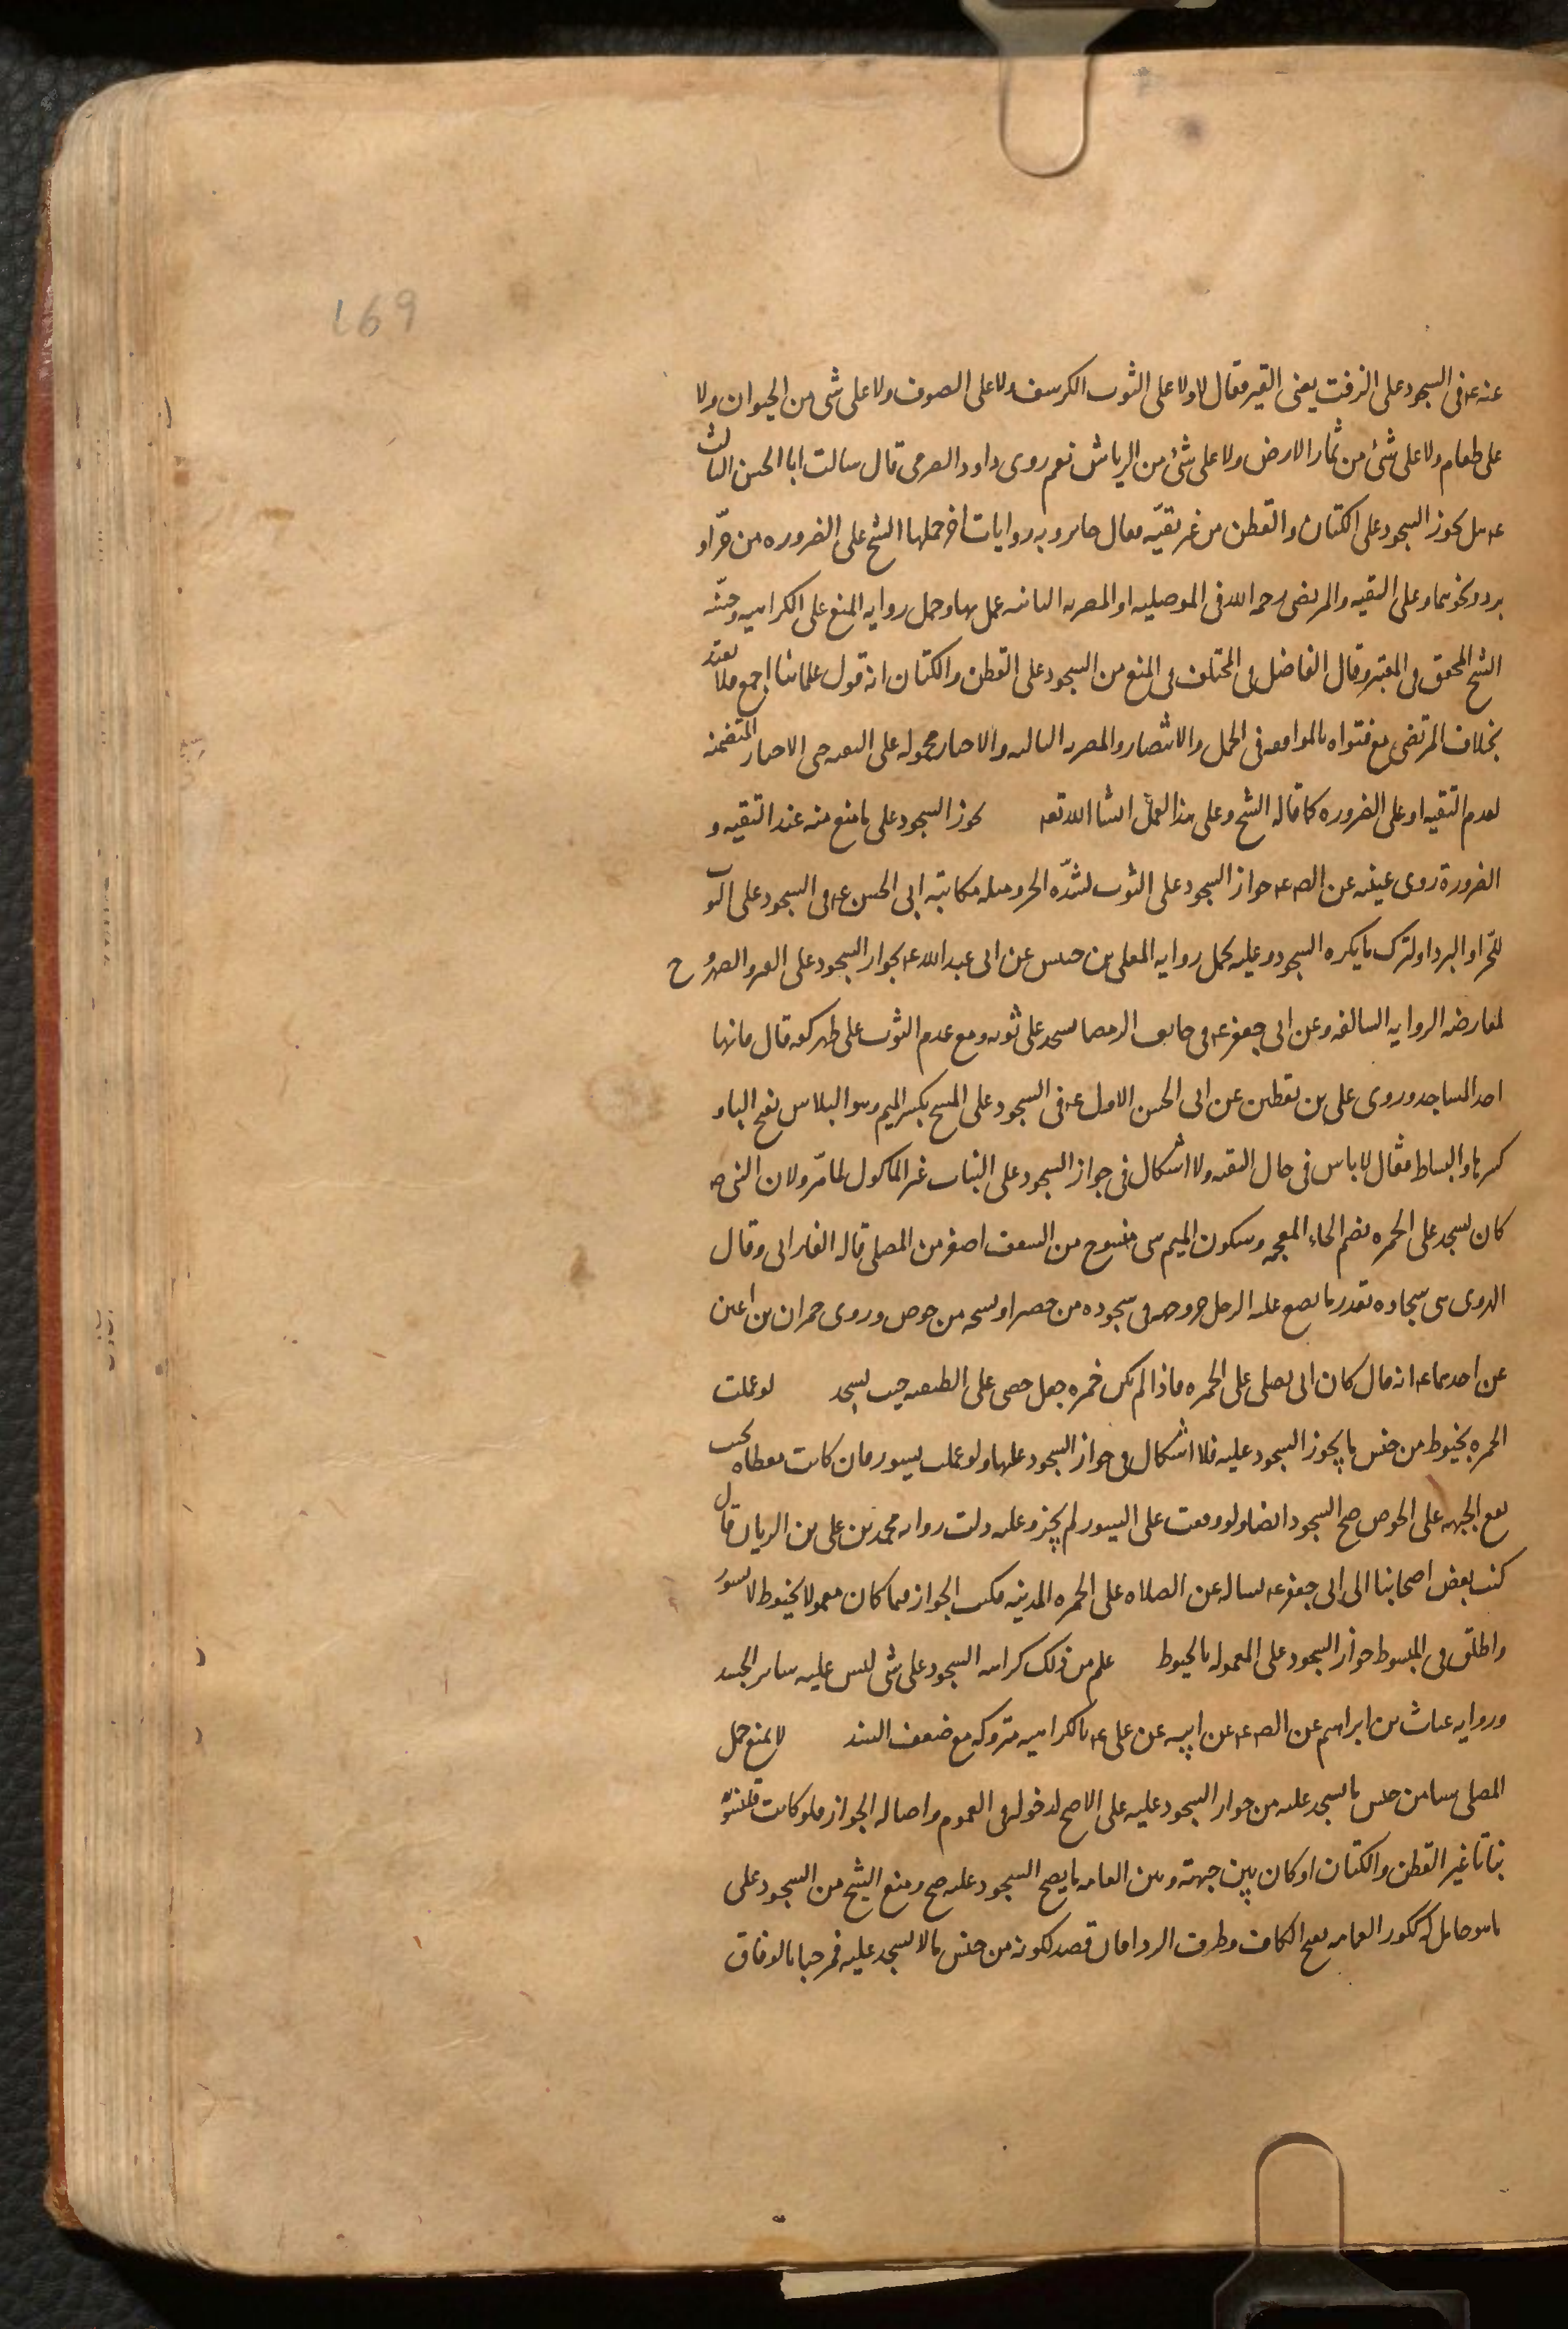 169
عنه ع في السجود على الزفت يعنى القير فقال لا ولا على الثوب الكرسف ولا على الصوف ولا على شى من الحيوان ولا
على طعام ولا على شئ من ثمار الارض ولا على شئ من الرياش نعم روى داود الصرمى قال سالت ابا الحسن الثالث
ع هل يجوز السجود على الكتان والقطن من غير تقيّه فقال جايز وبه روايات اخر حملها الشيخ على الضروره من حرّ او
برد ونحوهما وعلى التقيه والمرتضى رحمه الله فى الموصليه او المصريه الثانيه عمل بها وحمل روايه المنع على الكراهيه وحسّنه
الشيخ المحقق فى المعتبر وقال الفاضل فى المختلف فى المنع من السجود على القطن والكتان انه قول علمائنا اجمع فلا يعتد
بخلاف المرتضى مع فتواه بالموافقه فى الجمل والانتصار والمصريه الثالثه والاخبار محموله على التقيه حتى الاخبار المتضمنه
لعدم التقيه او على الضروره كما قاله الشيخ وعلى هذا العمل انشا الله تعه يجوز السجود على ما منع منه عند التقيه و
الضرورة روى عيينه عن الص ع جواز السجود على الثوب لشدّه الحر ومثله مكاتبته ابى الحسن ع فى السجود على الثوب
للحّر او البرد او لترك ما يكره السجود وعليه يحمل روايه المعلى بن خنيس عن ابى عبد الله ع بجواز السجود على القير والصهروج
لمعارضه الروايه السالفه وعن ابى جعفر ع فى خايف الرمضا يسجد على ثوبه ومع عدم الثوب على ظهر كفه قال فانها
احد المساجد وروى على بن يقطين عن ابى الحسن الاول ع فى السجود على المسح بكسر الميم وهو البلاس بفتح الباو
كسرها والبساط فقال لا باس فى حال التقيه ولا اشكال فى جواز السجود على النبات غير الماكول لما مرّ ولان النبى ص
كان يسجد على الخمره بضم الخاء المعجمه وسكون الميم شى منسوج من السعف اصغر من المصلى قاله الفارابى وقال
الهروى هى سجاده بقدر ما يضع عليه الرجل حر وجهه فى سجوده من حصير او نسجه من خوص وروى حمران بن اعين
عن احدهما ع انه قال كان ابى يصلى على الخمره فاذا لم يكن خمره جعل حصى على الطنفسه حيث يسجد لو عملت
الخمره بخيوط من جنس ما يجوز السجود عليه فلا اشكال فى جواز السجود عليها ولو عملت بسيور فان كانت مغطاه بحيث
يقع الجبهه على الخوص صح السجود ايضا ولو وقعت على السيور لم يجز وعليه دلت روايه محمد بن على بن الريان قال
كتب بعض اصحابنا الى ابى جعفر ع يساله عن الصلاه على الخمره المدنيه فكتب الجواز فيما كان معمولا بخيوط لا بسيور
واطلق فى المبسوط جواز السجود على المعموله بالخيوط علم من ذلك كراهه السجود على شى ليس عليه ساير الجسد
وروايه غياث بن ابراهيم عن الص ع عن ابيه عن على ع بالكراهيه متروكه مع ضعف السند لا يمنع حمل
المصلى شيا من جنس ما يسجد عليه من جواز السجود عليه على الاصح لدخوله فى العموم واصاله الجواز فلو كانت قلنسوته
نباتا غير القطن والكتان او كان بين جبهته وبين العمامه ما يصح السجود عليه صح ومنع الشيخ من السجود على
ما هو حامل له ككور العمامه بفتح الكاف وطرف الردا فان قصد لكونه من جنس ما لا يسجد عليه فمرحبا بالوفاق